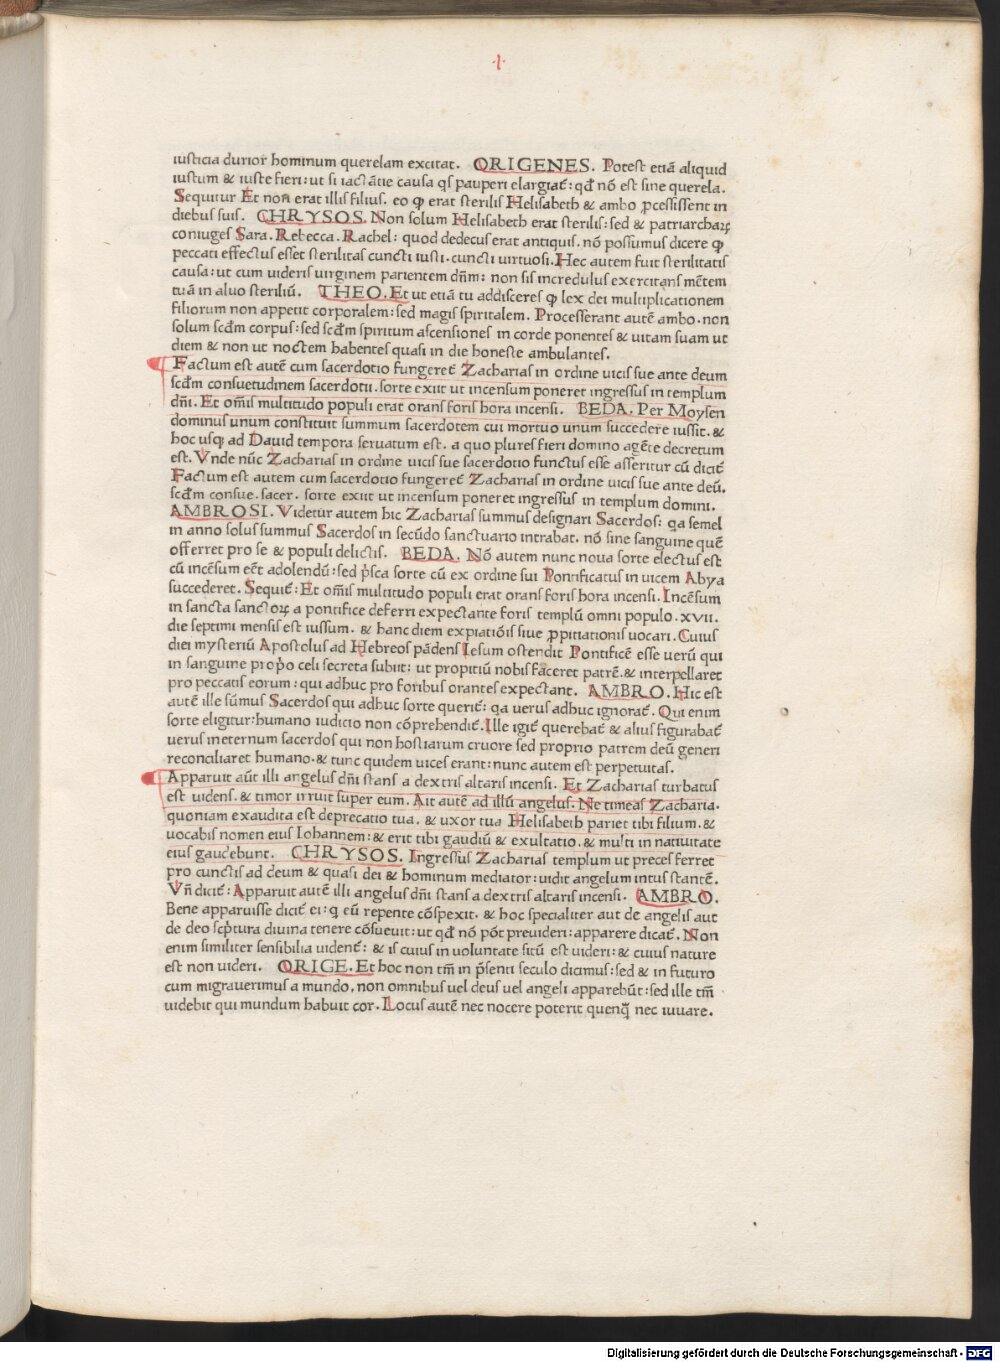 ·I·
iusticia durior hominum querelam excitat. ORIGENES. Potest etiā aliquid
iustum & iuste fieri: ut si iactātie causa qs pauperi elargiat᷑: qđ nō est sine querela.
Sequitur Et non erat illis filius. eo ꝙ erat sterilis Helisabeth & ambo ꝓcessissent in
diebus suis. CHRYSOS. Non solum Helisabeth erat sterilis: sed & patriarchaꝝ
coniuges Sara. Rebecca. Rachel: quod dedecus erat antiquis. nō possumus dicere ꝙ
peccati effectus esset sterilitas cuncti iusti. cuncti uirtuosi. Hec autem fuit sterilitatis
causa: ut cum uideris uirginem parientem dn̄m: non sis incredulus exercitans mētem
tuā in aluo steriliū. THEO. Et ut etiā tu addisceres ꝙ lex dei multiplicationem
filiorum non appetit corporalem: sed magis spiritalem. Processerant autē ambo. non
solum scđm corpus: sed scđm spiritum ascensiones in corde ponentes & uitam suam ut
diem & non ut noctem habentes quasi in die honeste ambulantes.
Factum est autē cum sacerdotio fungeret᷑ Zacharias in ordine uicis sue ante deum
scđm consuetudinem sacerdotii. sorte exiit ut incensum poneret ingressus in templum
dn̄i. Et om̄is multitudo populi erat orans foris hora incensi. BEDA. Per Moysen
dominus unum constituit summum sacerdotem cui mortuo unum succedere iussit. &
hoc usqꝫ ad Dauid tempora seruatum est. a quo plures fieri domino agēte decretum
est. Vnde nūc Zacharias in ordine uicis sue sacerdotio functus esse asseritur cū dicit᷑
Factum est autem cum sacerdotio fungeret᷑ Zacharias in ordine uicis sue ante deū.
scđm consue. sacer. sorte exiit ut incensum poneret ingressus in templum domini.
AMBROSI. Videtur autem hic Zacharias summus designari Sacerdos: qa semel
in anno solus summus Sacerdos in secūdo sanctuario intrabat. nō sine sanguine quē
offerret pro se & populi delictis. BEDA. Nō autem nunc noua sorte electus est
cū incēsum eēt adolendū: sed pͥsca sorte cū ex ordine sui Pontificatus in uicem Abya
succederet. Sequit᷑: Et om̄is multitudo populi erat orans foris hora incensi. Incēsum
in sancta sanctoꝝ a pontifice deferri expectante foris templū omni populo. xvii.
die septimi mensis est iussum. & hanc diem expiatiōis siue ꝓpitiationis uocari. Cuius
diei mysteriū Apostolus ad Hebreos pādens Iesum ostendit Pontificē esse uerū qui
in sanguine propͥo celi secreta subiit: ut propitiū nobis faceret patrē. & interpellaret
pro peccatis eorum: qui adhuc pro foribus orantes expectant. AMBRO. Hic est
autē ille sūmus Sacerdos qui adhuc sorte querit᷑: qa uerus adhuc ignorat᷑. Qui enim
sorte eligitur: humano iudicio non cōprehendit᷑. Ille igit᷑ querebat᷑ & alius figurabat᷑
uerus in eternum sacerdos qui non hostiarum cruore sed proprio patrem deū generi
reconciliaret humano. & tunc quidem uices erant: nunc autem est perpetuitas.
Apparuit aūt illi angelus dn̄i stans a dextris altaris incensi. Et Zacharias turbatus
est uidens. & timor irruit super eum. Ait autē ad illū angelus. Ne timeas Zacharia.
quoniam exaudita est deprecatio tua. & uxor tua Helisabeth pariet tibi filium. &
uocabis nomen eius Iohannem: & erit tibi gaudiū & exultatio. & multi in natiuitate
eius gaudebunt. CHRYSOS. Ingressus Zacharias templum ut preces ferret
pro cunctis ad deum & quasi dei & hominum mediator: uidit angelum intus stantē.
Vn̄ dicit᷑: Apparuit autē illi angelus dn̄i stans a dextris altaris incensi. AMBRO.
Bene apparuisse dicit᷑ ei: q eū repente cōspexit. & hoc specialiter aut de angelis aut
de deo scpͥtura diuina tenere cōsueuit: ut qđ nō pōt preuideri: apparere dicat᷑. Non
enim similiter sensibilia uident᷑: & is cuius in uoluntate sitū est uideri: & cuius nature
est non uideri. ORIGE. Et hoc non tm̄ in pͥsenti seculo dicimus: sed & in futuro
cum migrauerimus a mundo, non omnibus uel deus uel angeli apparebūt: sed ille tm̄
uidebit qui mundum habuit cor. Locus autē nec nocere poterit quenqꝫ nec iuuare.
Digitalisierung gefördert durch die Deutsche Forschungsgemeinschaft - DFG